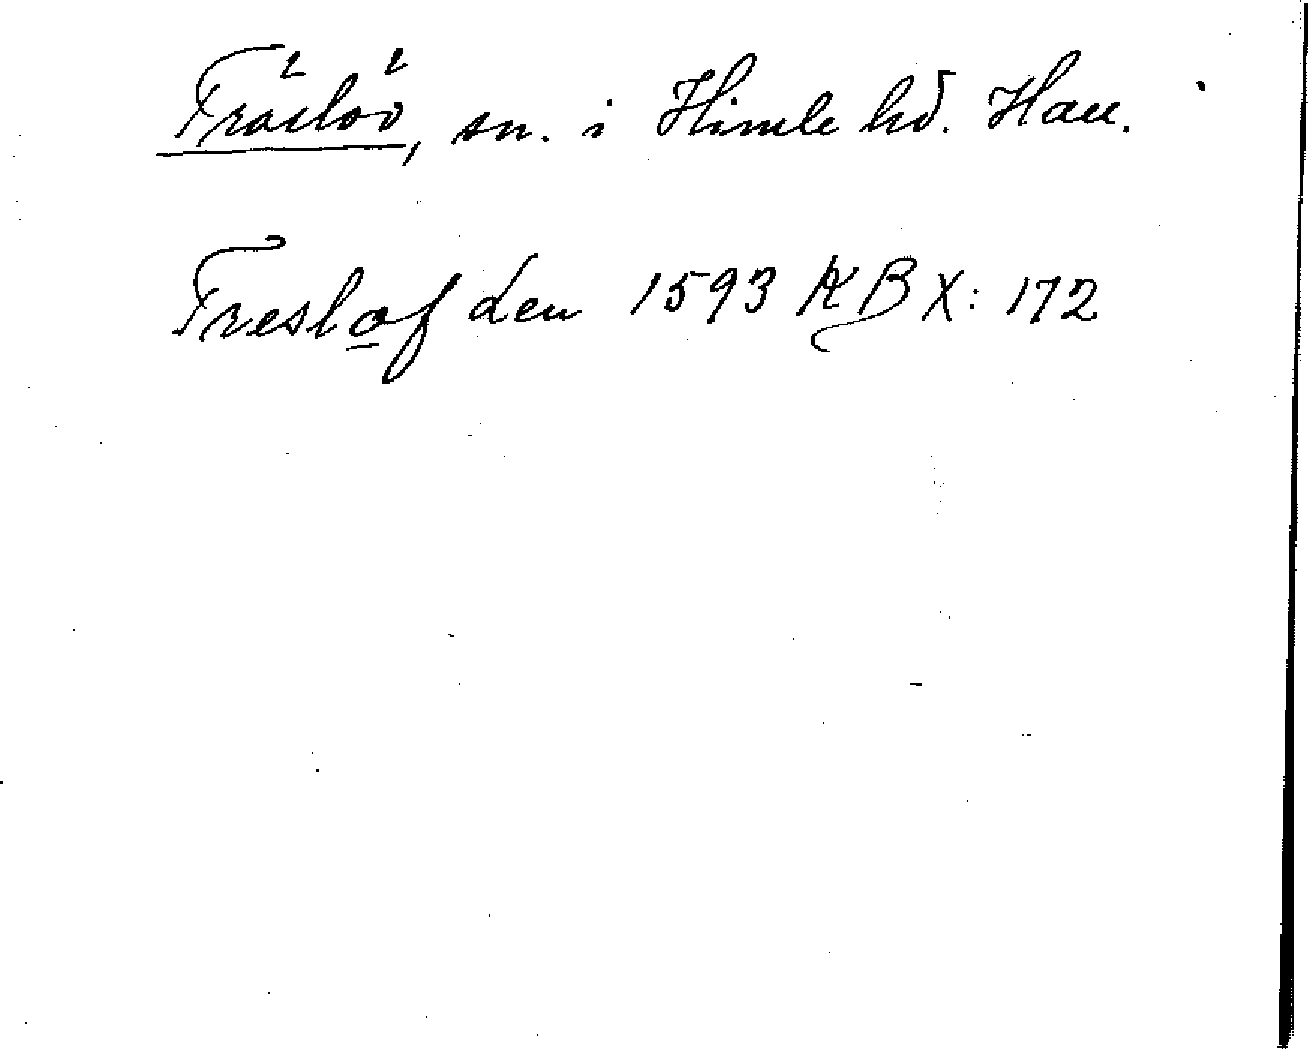 Träslöv, sn. i Himle hd. Hall.
Treslof den 1593 KB X: 172